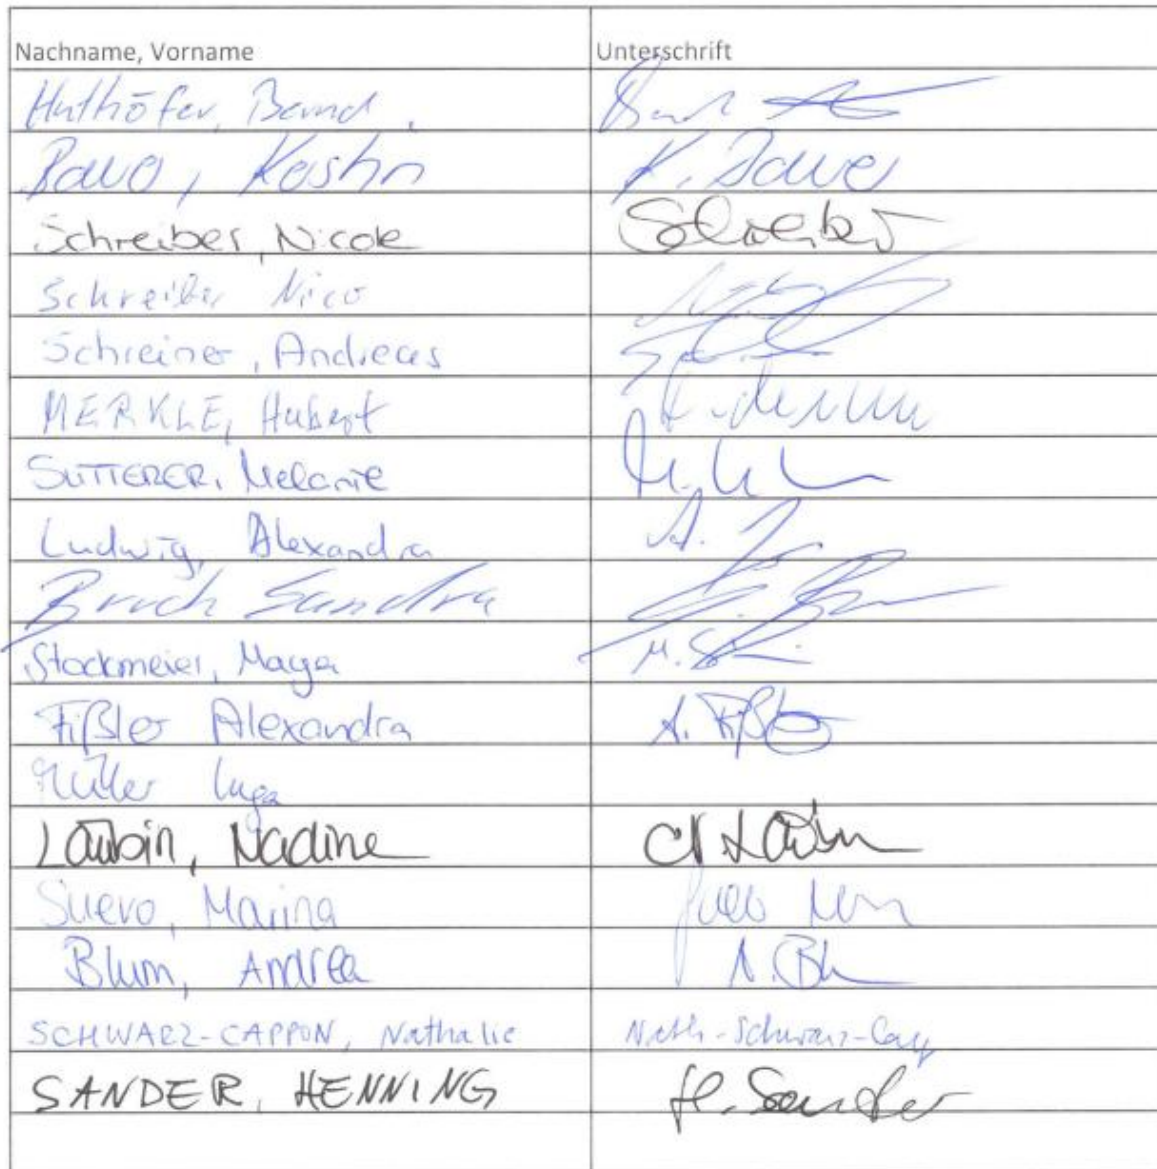 Nachname, Vorname Unterschrift
Huthöfer, Bernd
Kostin K. Bauer
Schreiber, Nicole Schreiber
Schreiber Nico
Schreiner, Andreas
MERKLE, Hubert
SUTTERER, Melanie
Ludwig, Alexandra A.
Bruch Sandra
Stockmeier, Maya M.
Fißler Alexandra A. Fißler
Müller Inga
Laubin, Nadine N Laubin
Suevo, Marina
Blum, Andrea A. Bl
SCHWARZ-CAPPON, Nathalie Nath-Schwarz-Capp
SANDER, HENNING H. Sander